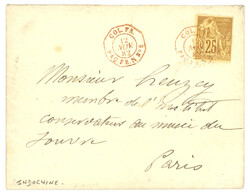 COL. FR.
12
NOV
82
25
Monsieur Heuzey
membre de l'Institut
conservateur au musée du
Louvre
Paris
INDOCHINE.